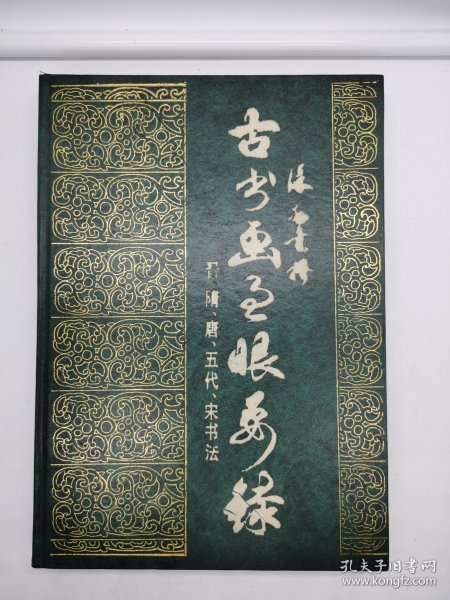 古书画过眼要录
徐邦达
晋、隋、唐、五代、宋书法
孔夫子旧书网
www.kongfz.com